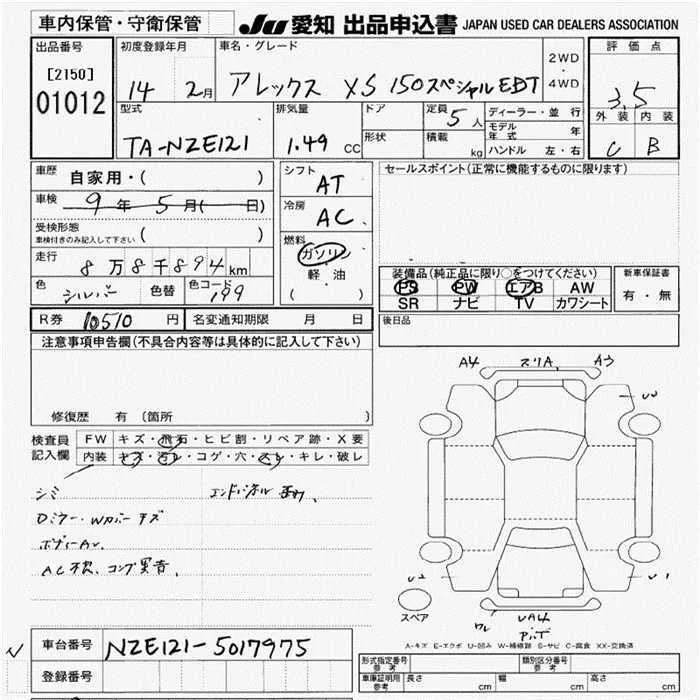 車内保管・守衛保管
JU 愛知 出品申込書 JAPAN USED CAR DEALERS ASSOCIATION
出品番号 [2150] 01012
初度登録年月 14 2月
車名・グレード アレックス XS 150スペシャルEDT
2WD・4WD
評価点 3.5
外装 内装
C B
型式 TA-NZE121
排気量 1.49 CC
ドア
形状
定員 5人
積載 kg
ディーラー・並行
モデル年式 年
ハンドル 左・右
車歴 自家用・( )
車検 9年 5月( 日)
受検形態
車検付きのみ記入して下さい ( )
走行 8万8千894km
色 シルバー 色替 色コード 199
シフト AT
冷房 AC
燃料 ガソリン
軽・油
( )
セールスポイント(正常に機能するものに限ります)
装備品(純正品に限り○をつけてください)
PS PW エアB AW
SR ナビ TV カワシート
新車保証書
有・無
R券 10510 円 名変通知期限 月 日
後日品
注意事項申告欄(不具合内容等は具体的に記入して下さい)
修復歴 有 (箇所 )
検査員記入欄
FW キズ・飛石・ヒビ割・リペア跡・X要
内装 キズ・汚レ・コゲ・穴・スレ・キレ・破レ
シミ
Dミラー・Wカバーキズ
AC不良、コンプ異音、
A4 スリA、A3
U2 U1
UA4
スペア
A-キズ E-エクボ U-凹み W-補修跡 S-サビ C-腐食 XX-交換済
車台番号 NZE121-5017975
登録番号
形式指定番号 参考
類別区分番号 参考
車庫証明用 参考 長さ cm 幅 cm 高さ cm